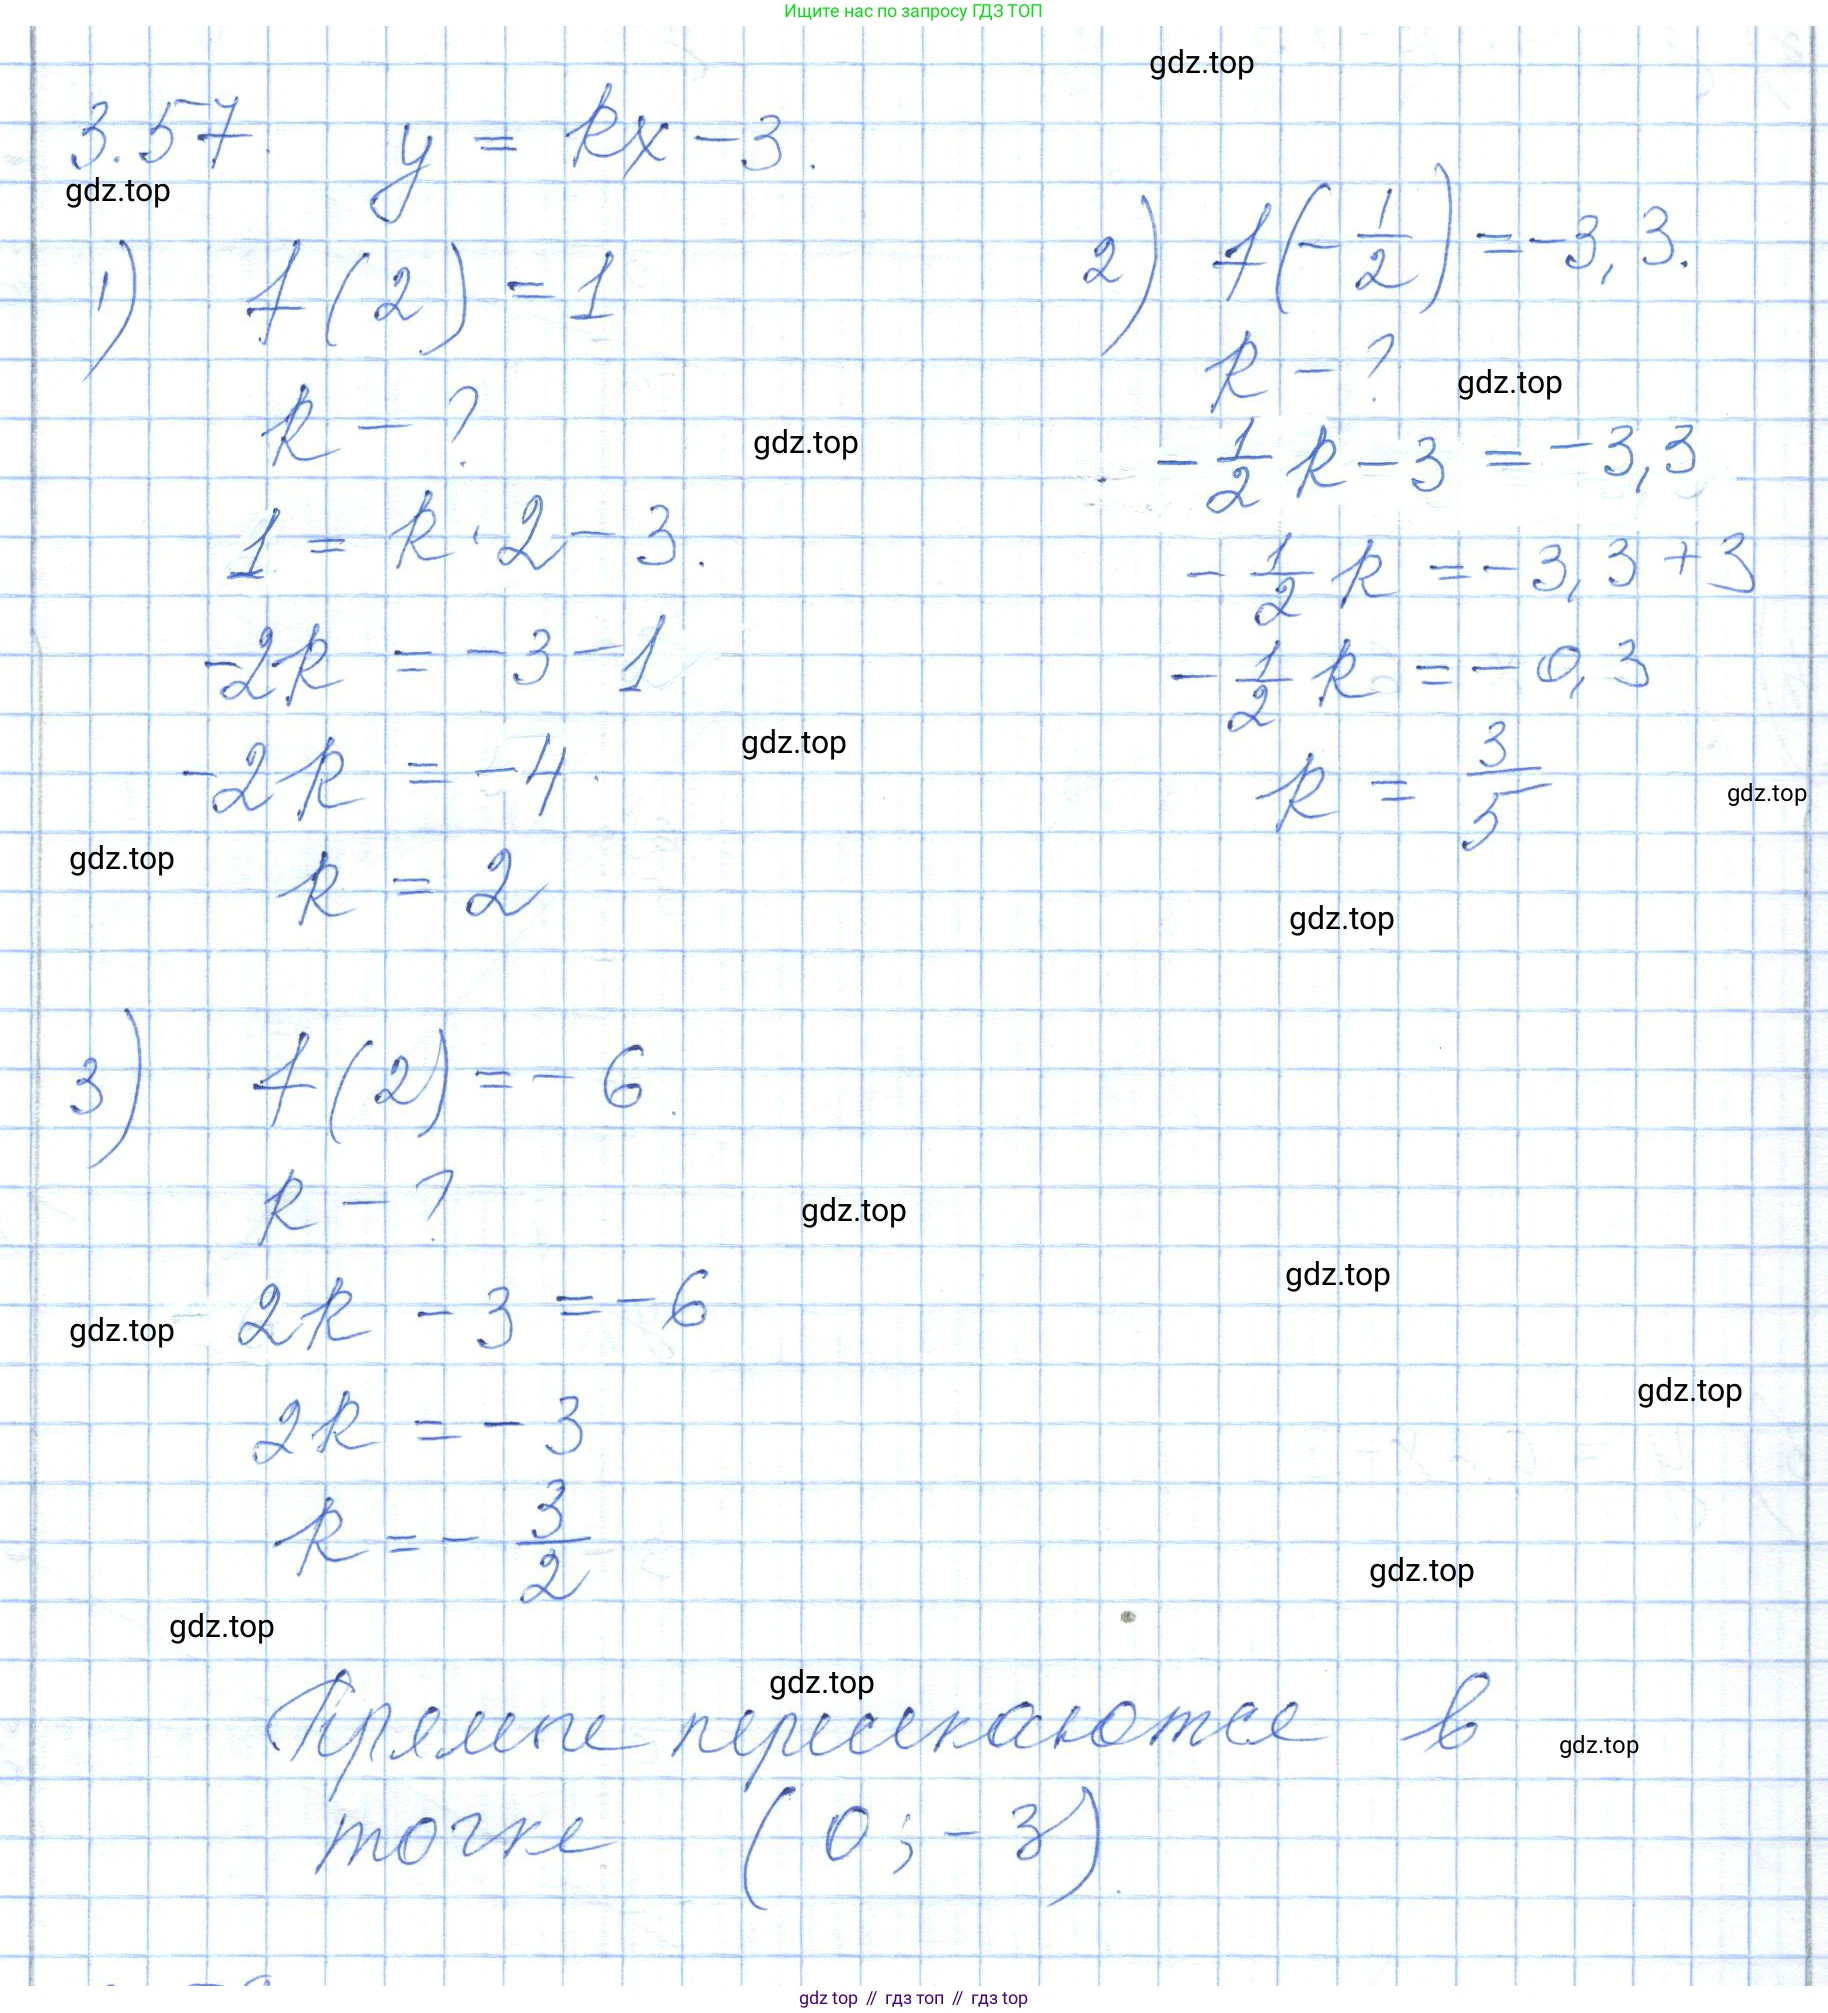 Ищите нас по запросу ГДЗ ТОП
gdz.top
3.57 y = kx - 3.
gdz.top
1) f(2) = 1
k - ?
gdz.top
1 = k · 2 - 3.
-2k = -3 - 1
gdz.top
-2k = -4.
gdz.top
k = 2
2) f(-1/2) = -3,3.
k - ?
gdz.top
-1/2 k - 3 = -3,3
-1/2 k = -3,3 + 3
-1/2 k = -0,3
k = 3/5
gdz.top
gdz.top
3) f(2) = -6.
k - ?
gdz.top
gdz.top
2k - 3 = -6
gdz.top
gdz.top
2k = -3
k = -3/2
gdz.top
gdz.top
gdz.top
Прямые пересекаются в
gdz.top
точке (0; -3).
gdz top // гдз топ // гдз top